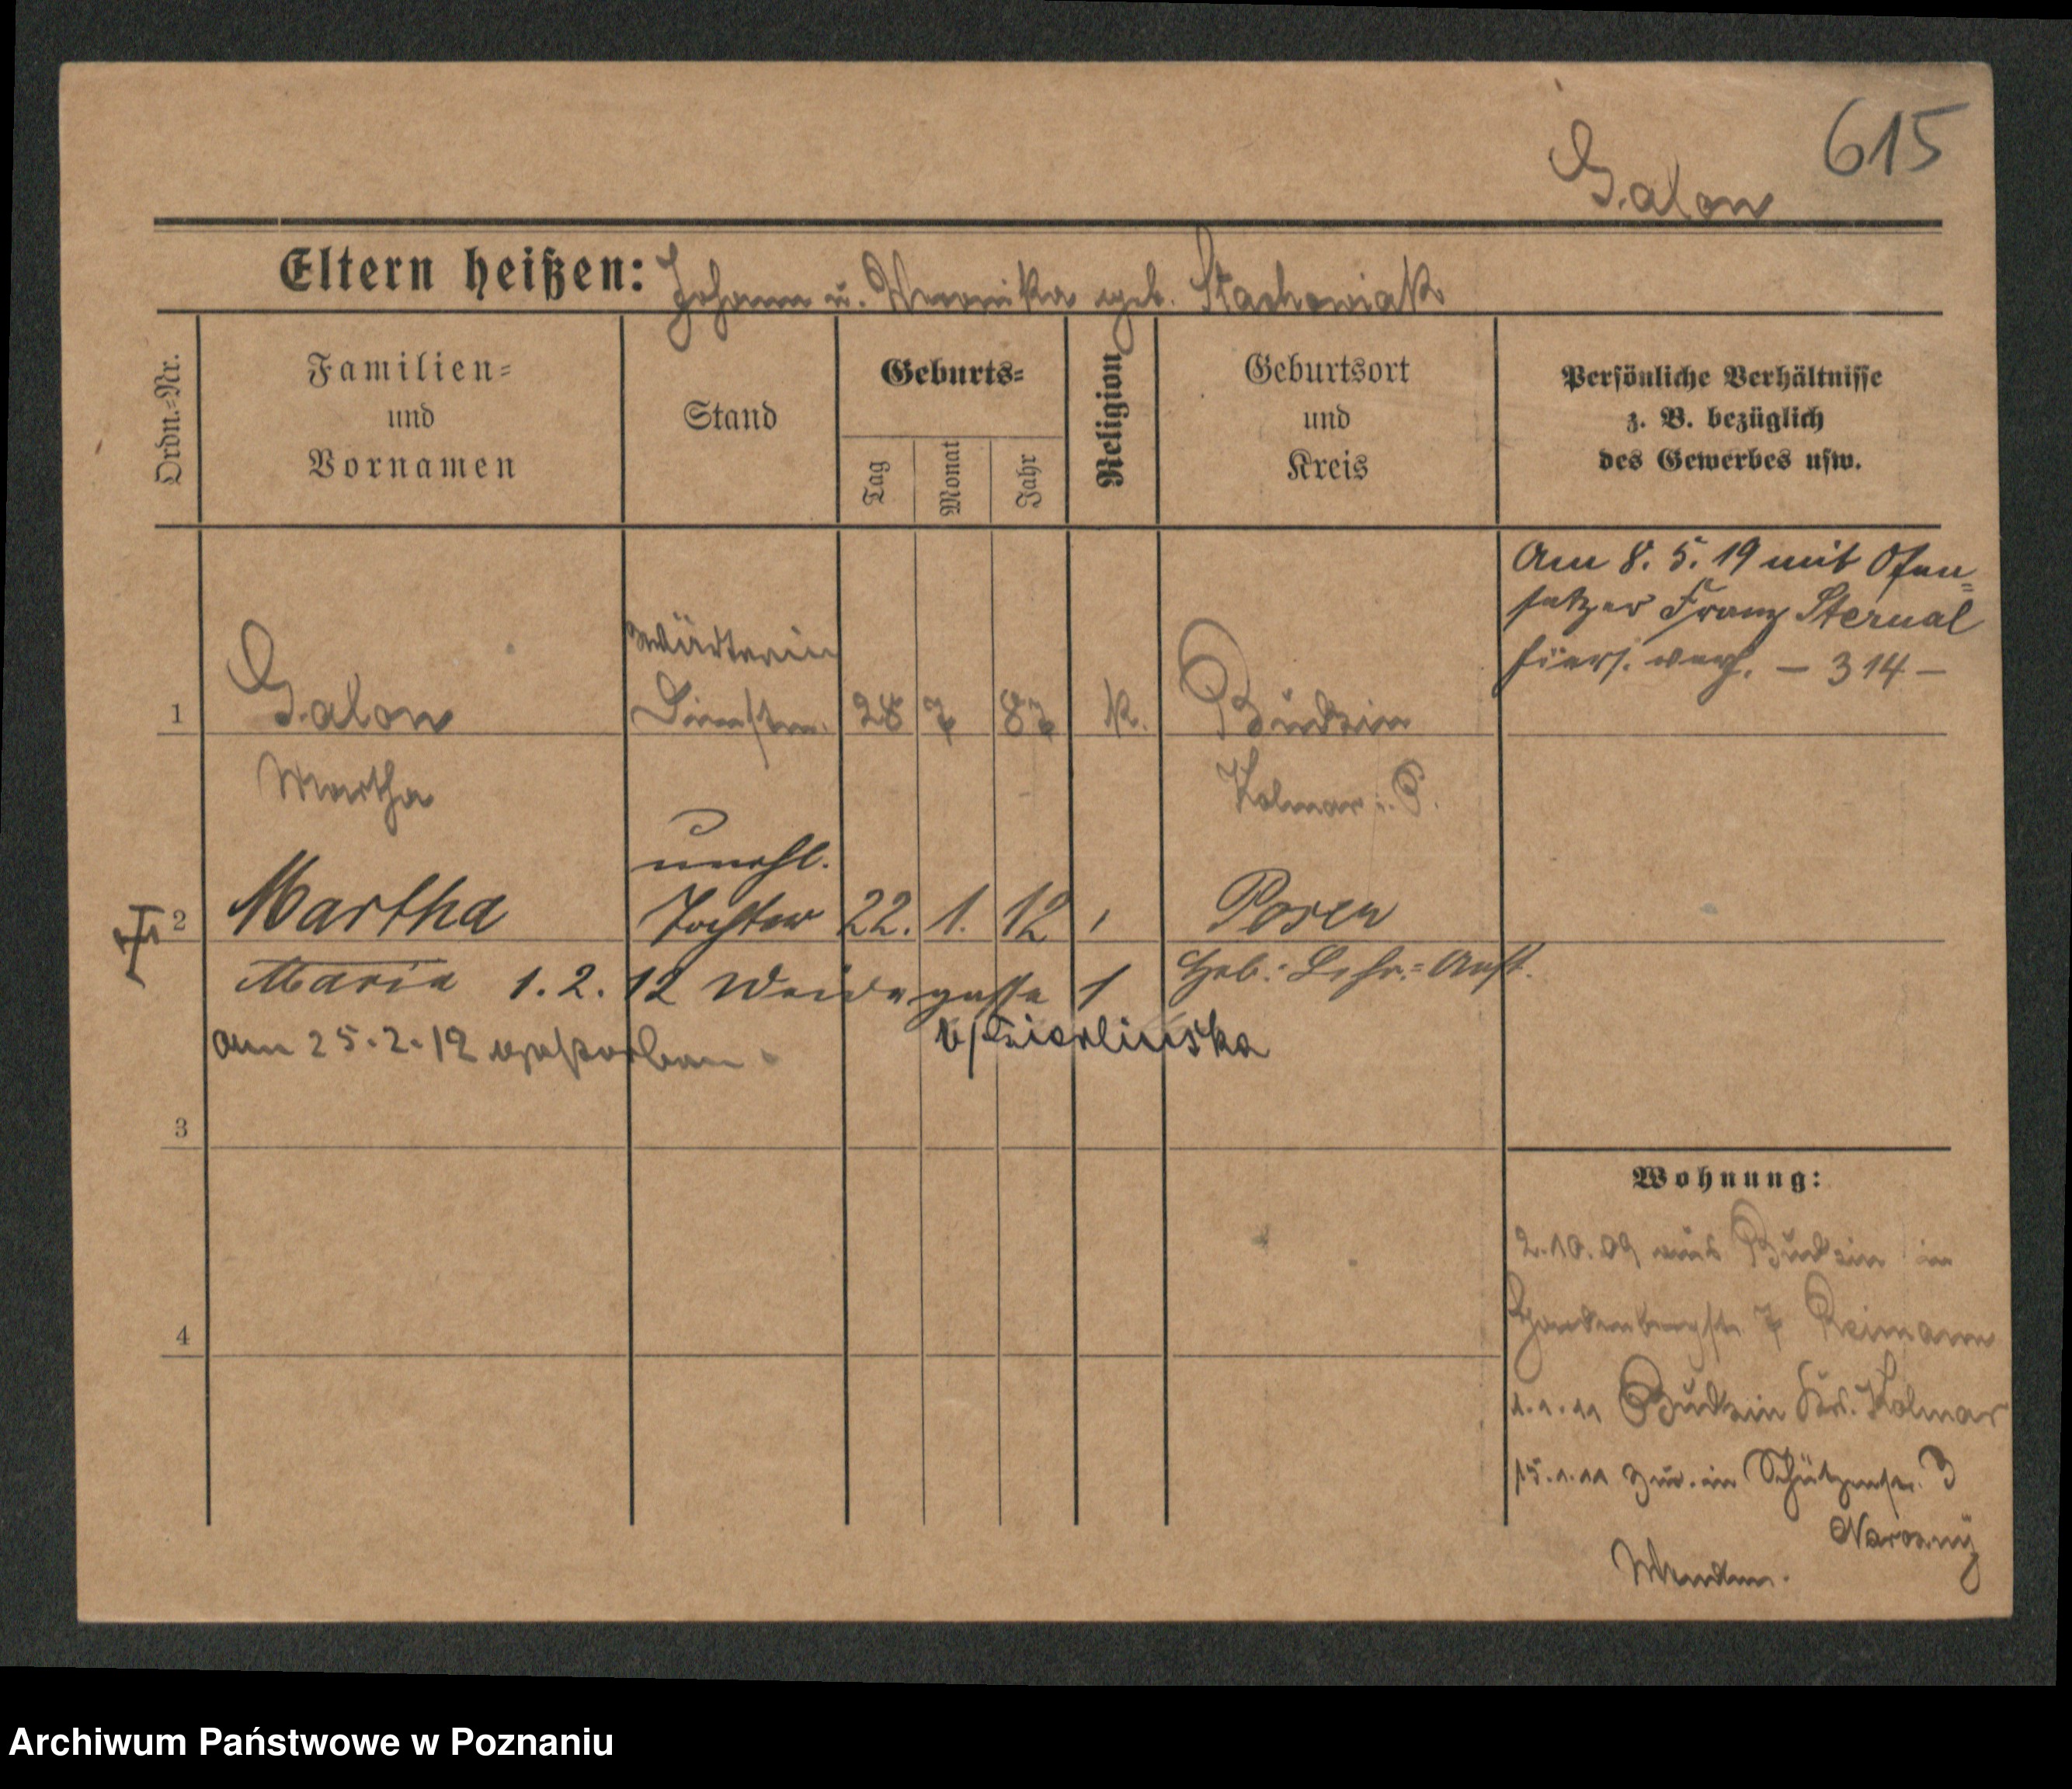 615
Galon
Eltern heißen: Johann u. Veronika geb. Stachowiak
Ordn.-Nr.
Familien-
und
Vornamen
Stand
Geburts-
Tag
Monat
Jahr
Religion
Geburtsort
und
Kreis
Persönliche Verhältnisse
z. B. bezüglich
des Gewerbes usw.
Am 8. 5. 19 mit Ofen-
setzer Franz Sternal
hiers. verh. – 314 –
Wärterin
1 Galon Dienstm. 28 7 87 k. Budsin
Martha Kolmar i. P.
unehl.
2 Martha Tochter 22. 1. 12 Posen
Maria 1. 2. 12 Waisengasse 1 Heb.-Lehr-Anst.
am 25. 2. 12 verstorben
3
4
Wohnung:
2.10.09 aus Budsin in
7 Reimann
1.1.11 Budsin Krs. Kolmar
15.1.11 zur. in Schützenstr. 3
Wenden.
Archiwum Państwowe w Poznaniu